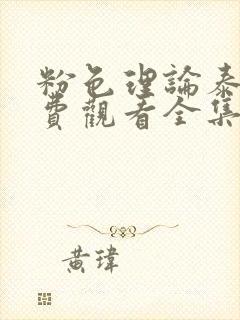 粉色理論泰
費觀看全集
黃瑋